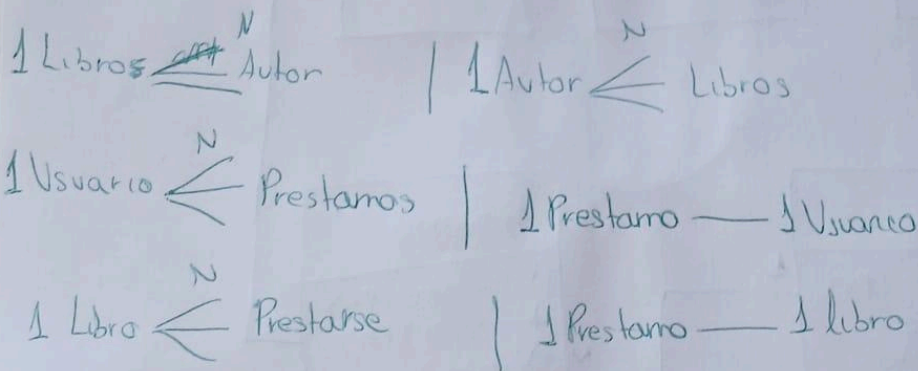 1 Libros N Autor | 1 Autor N Libros
1 Usuario N Prestamos | 1 Prestamo — 1 Usuario
1 Libro N Prestarse | 1 Prestamo — 1 libro